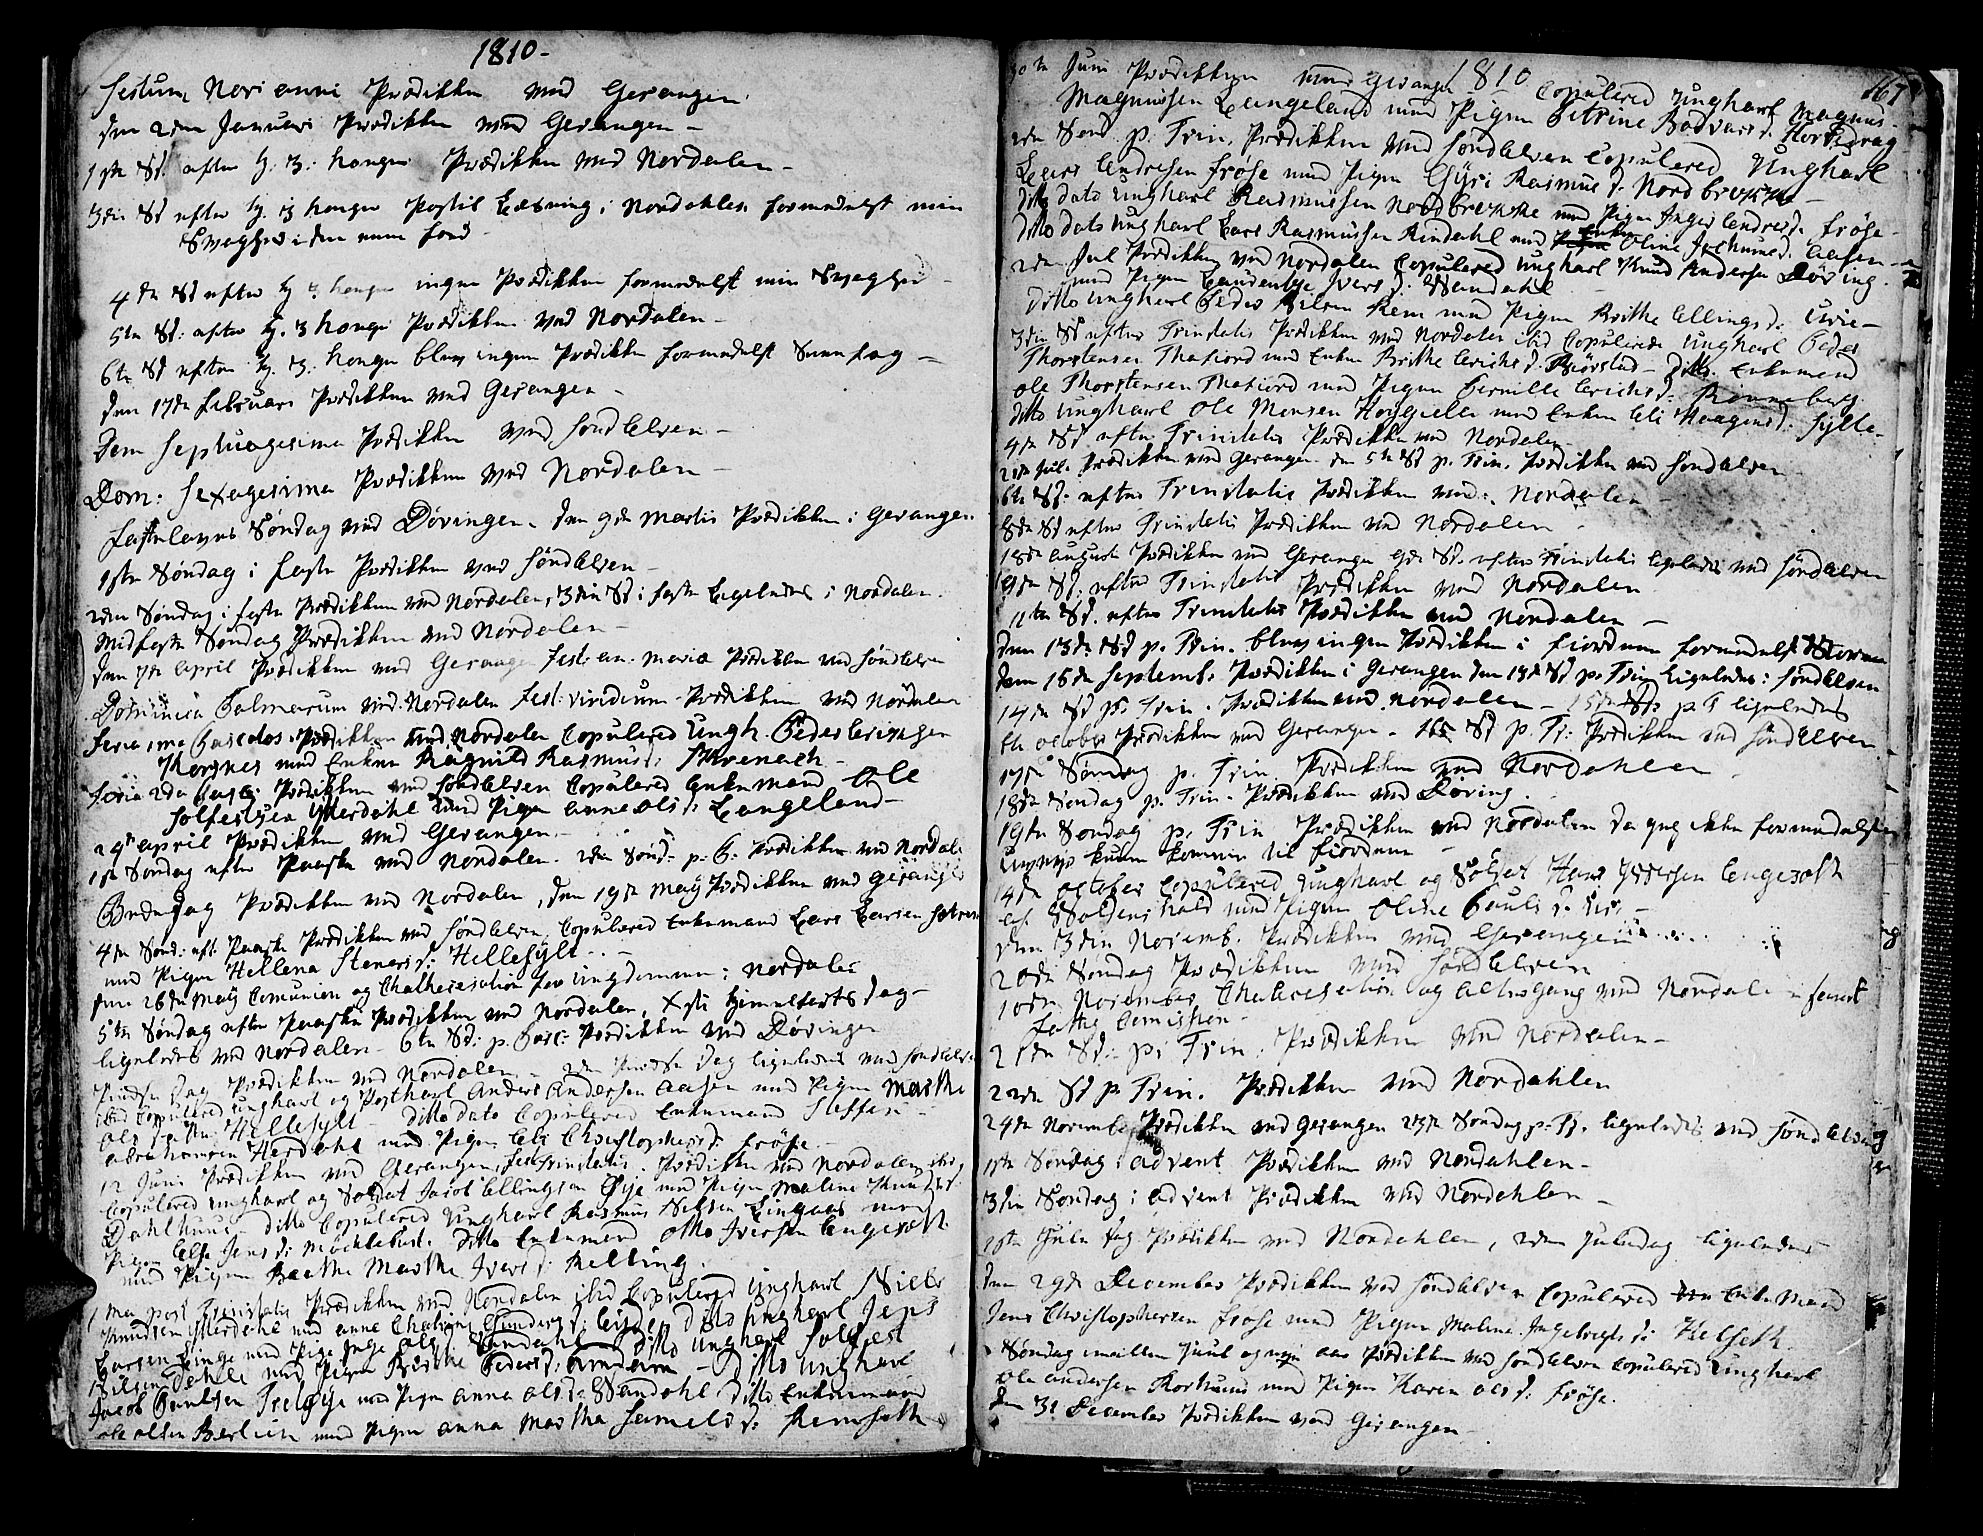 1810-
Festum Novi anni Prædikken ved Geranger
den 2den Januari Prædikken ved Gerangen -
1ste Sd. efter h. 3. konger Prædikken ved Nordalen -
3die Sd efter h. 3 konger Postil Læsning i Nordahlen formedelst min
Svaghed
4de Sd efter h 3 konger ingen Prædikken formedelst min Svaghed
5te Sd: efter h. 3 konge Prædikken ved Nordalen -
6te Sd efter h. 3. konger blev ingen Prædikken formedelst
den 17de Februari Prædikken ved Gerangen -
Dom Septuagesima Prædikken ved Søndelven -
Dom: Sexagesima Prædikken ved Nordalen -
Fastelavns Søndag ved Døvingen. den 9de Martii Prædikken i Gerangen.
1ste Søndag i faste Prædikken ved Søndelven -
2den Søndag i faste Prædikken ved Nordalen, 3die Sd i faste Ligeledes i Nordalen.
Midfaste Søndag Prædikken ved Nordalen -
den 7de April Prædikken ved Geranger Fest: an: Mariæ Prædikken ved Søndelven
Dominica Palmarum ved Nordalen Fest: viridium Prædikken ved Nordalen
Feria 1ma Pascatos Prædikken ved Nordalen Copulered Ungk. Peder
med Enken Ragnild Rasmusd:
Feria 2da Pasc: Prædikken ved Søndelven Copulered Enkemand Ole
Solfestsen Ytterdahl med Pigen Anne Olsd: Langeland -
29de April Prædikken ved Gerangen -
1ste Søndag efter Paaske ved Nordalen. 2den Sønd: p. P. Prædikken ved Nordalen
Bededag Prædikken ved Nordalen, den 19de Maij Prædikken ved Geranger
4de Sønd: eft. Paaske Prædikken ved Søndelven, Copulered Enkemand Lars Larsen
med Pigen Hellena Stenersd: Hellesylt -
den 26de Maij Comunion og Chathecesation for Ungdommen i Nordalen
5te Søndag efter Paaske Prædikken ved Nordalen, Xsti Himmelfarts dag -
ligeledes ved Nordalen - 6te Sd: p. Pasc: Prædikken ved Døvingen
Pindse Dag Prædikken ved Nordalen - 2den Pindse Dag ligeledes ved Søndelven
ibid Copulered Ungkarl og Postkarl Anders Andersen Aasen med Pigen Marthe
Olsd: Hellesylt - Ditto dato Copulered Enkemand Steffen
Abrahamsen Herdahl med Pigen Christophersd: Frøse -
12 Juni Prædikken ved Gerangen, Fest Trinitatis. Prædikken ved Nordalen ibid
Copulered Ungkarl og Soldat Jacob Ellingsen Øye med Pigen Maline Knudsd:
Dahlhuus - Ditto Copulered Ungkarl Rasmus Nielsen Lingaas med
Pigen Else Jensd: Ditto Enkemand Otto Iversen Engeseth
med Pigen Marthe Iversd: Relling.
1ma post Trinitatis Prædikken ved Nordalen ibid Copulered Ungkarl Niels
Knudsen Ytterdahl med Anne Gundersd: Ditto Ungkarl Jens
Larsen Linge med Pige Inge Olsd: Ditto Ungkarl Solfest
Nilsen Dahle med Pigen Brithe Pedersd: - Ditto Ungkarl
Jacob Poulsen med Pigen Anna Olsd: Ditto Enkemand
Ole Olsen Berlien med Pigen Anna Martha Samelsd:
1810
167
30te Juni Prædikken ved Geranger Copulered Ungkarl Magnus
Magnussen Langeland med Pigen Petrine
2den Sønd. p. Trin. Prædikken ved Søndelven Copulered Ungkarl
Lars Endresen Frøse med Pigen Rasmusd: Nordbrekke
Ditto dato Ungkarl Rasmussen Nordbrekke med Pigen Inger Endresd: Frøse -
Ditto dato Ungkarl Lars Rasmussen Rindahl med Enken Oline Jochumsd: Aasen -
2den Jul Prædikken ved Nordalen Copulered Ungkarl Knud Andersen Døving
med Pigen Iversd:
Ditto Ungkarl Peder Nilsen Rem med Pigen Brithe Ellingsd:
3die Sd efter Trinitatis Prædikken ved Nordalen ibid Copulered Ungkarl Peder
Thorstensen Thafiord med Enken Brithe Erichsd: - Ditto. Enkemand
Ole Thorstensen Thafiord med Pigen Pernille Erichsd: Rønneberg
Ditto Ungkarl Ole Monsen med Enken Eli Haagensd. Sylte.
4de Sd efter Trinitatis Prædikken ved Nordalen
Juli Prædikken ved Gerangen den 5te Sd p. Trin. Prædikken ved Søndelven
6te Sd: efter Trinitatis Prædikken ved: Nordalen -
8de Sd efter Trinitatis Prædikken ved Nordalen -
18de August Prædikken ved Geranger Sd. efter Trinitatis ligeledes ved Søndelven
9de Sd. efter Trinitatis Prædikken ved Nordalen
11te Sd. efter Trinitatis Prædikken ved Nordalen -
den 13de Sd p. Trin. blev ingen Prædikken i fiordene formedelst Storm
den 16de Septemb. Prædikken i Gerangen den Sd p. Trin Ligeledes i Søndelven
14de Sd p. Trin. Prædikken ved Nordalen - 15de Sd: p T ligeledes
October Prædikken ved Geranger - 16de Sd p. Tr: Prædikken ved Søndelven
17de Søndag p. Trin. Prædikken ved Nordahlen -
18de Søndag p. Trin. Prædikken ved Døving.
19de Søndag p. Trin Prædikken ved Nordalen da jeg ikke formedelst
kunde komme til fiordene -
14de October Copulered Ungkarl og Soldat Hans Engeseth
med Pigen Oline Poulsd:
den 3die Novemb. Prædikken ved Gerangen
20de Søndag Prædikken ved Søndelven
10de November Chatecesation og Altergang ved Nordalen
fattig Comission -
21de Sd: p: Trin. Prædikken ved Nordalen -
22de Sd p. Trin. Prædikken ved Nordahlen
24de November Prædikken ved Gerangen 23de Søndag p. Tr. ligeledes ved Søndelven
1ste Søndag i Advent Prædikken ved Nordahlen -
3die Søndag i Advent Prædikken ved Nordahlen -
1ste Jule dag Prædikken ved Nordahlen, 2den Juledag ligeledes
den 29de December Prædikken ved Søndelven Copulered Enkemand
Jens Christophersen Frøse med Pigen Maline Ingebrigtsd: Helseth
Søndag imellem Juul og nyt aar Prædikken ved Søndelven Copulered Ungkarl
Ole Andersen Korhuus med Pigen Karen Olsd: Frøse.
den 31 December Prædikken ved Gerangen -